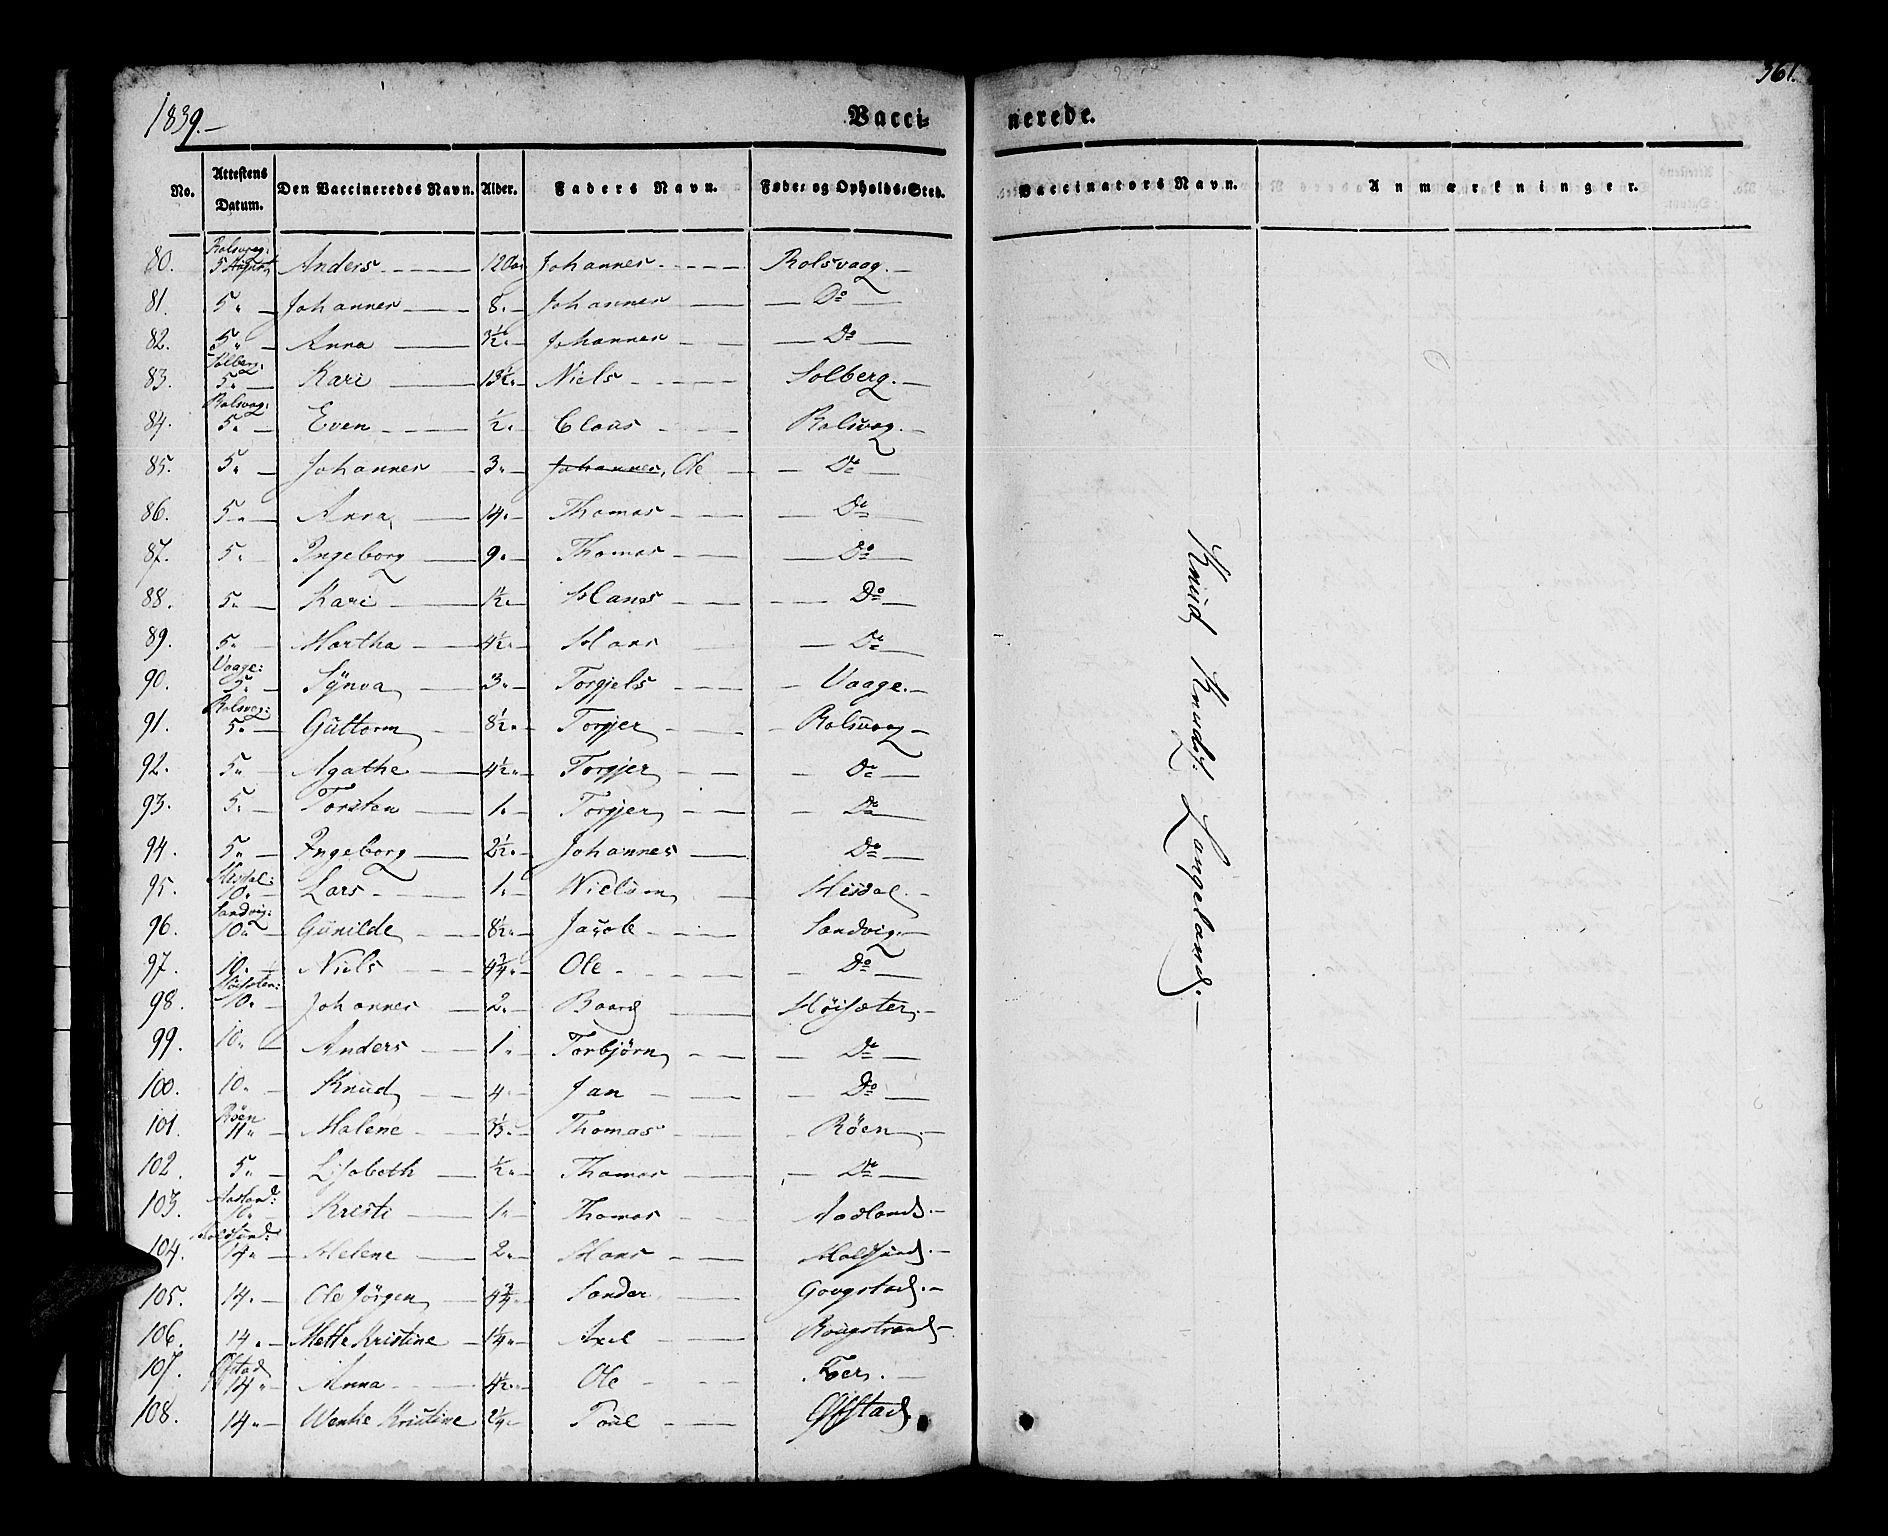 361.
1839.—
Vaccinerede.
No. Attestens Datum. Den Vaccineredes Navn. Alder. Faders Navn. Føde- og Opholds-Sted. Vaccinators Navn. Anmærkninger.
Rolsvog:
80. 5 August Anders 12 Johannes Rolsvaag.—
81. 5" — Johannes — 8" — Johannes — Do —
82. 5" — Anna — 3½" Johannes — Do —
Solberg:
83. 5" — Kari — 13½" Niels Solberg.—
Rolsvog:
84. 5" — Even — ½" Claus — Rolsvog.—
85. 5" — Johannes — 3" — Johannes, Ole — Do —
86. 5" — Anna — 14" — Thomas — Do —
87. 5" — Ingeborg — 9" Thomas — Do —
88. 5" — Kari — 1½" — Hans — Do —
89. 5" — Martha — 4½" — Hans — Do —
Vaage:
90. 5" — Synva — 3" — Torgjels — Vaage.—
Rolsvog:
91. 5" — Guttorm — 8½" — Torgjer — Rolsvaag—
92. 5" — Agathe — 4½" — Torgjer — Do —
93. 5" — Torsten — 1" — Torgjer — Do —
94. 5" — Ingeborg — 2½" — Johannes — Do —
Hisdal:
95. 10" — Lars — 1" — Nielsen — Hisdal.—
Sandvig:
96. 10" Gunilde — 8½" — Jacob — Sandvig.—
97. 10" — Niels — 4¾" — Ole — Do —
Høisæter:
98. 10" — Johannes — 2" — Baard — Høisæter.—
99. 10" — Anders — 1" — Torbjørn — Do —
100. 10" — Knud — 4" — Jan — Do —
Røen
101. 11" — Malene — 3⅓" — Thomas — Røen.—
102. 5" — Lisabeth — ½" — Thomas — Do —
103. 10" — Kristi — 1" — Thomas —
104. 14" — Helene — 2" — Hans —
105. 14" — Ole Jörgen — 4¾" — Sander
106. 14" — Mette Kristine — 1¼" — Axel —
Ofstad
107. 14" — Anna — 4½" — Ole — Fær.—
108. 14" — Wenke Kristine 2¼" — Ofstad
Knud Knuds: Langeland.—